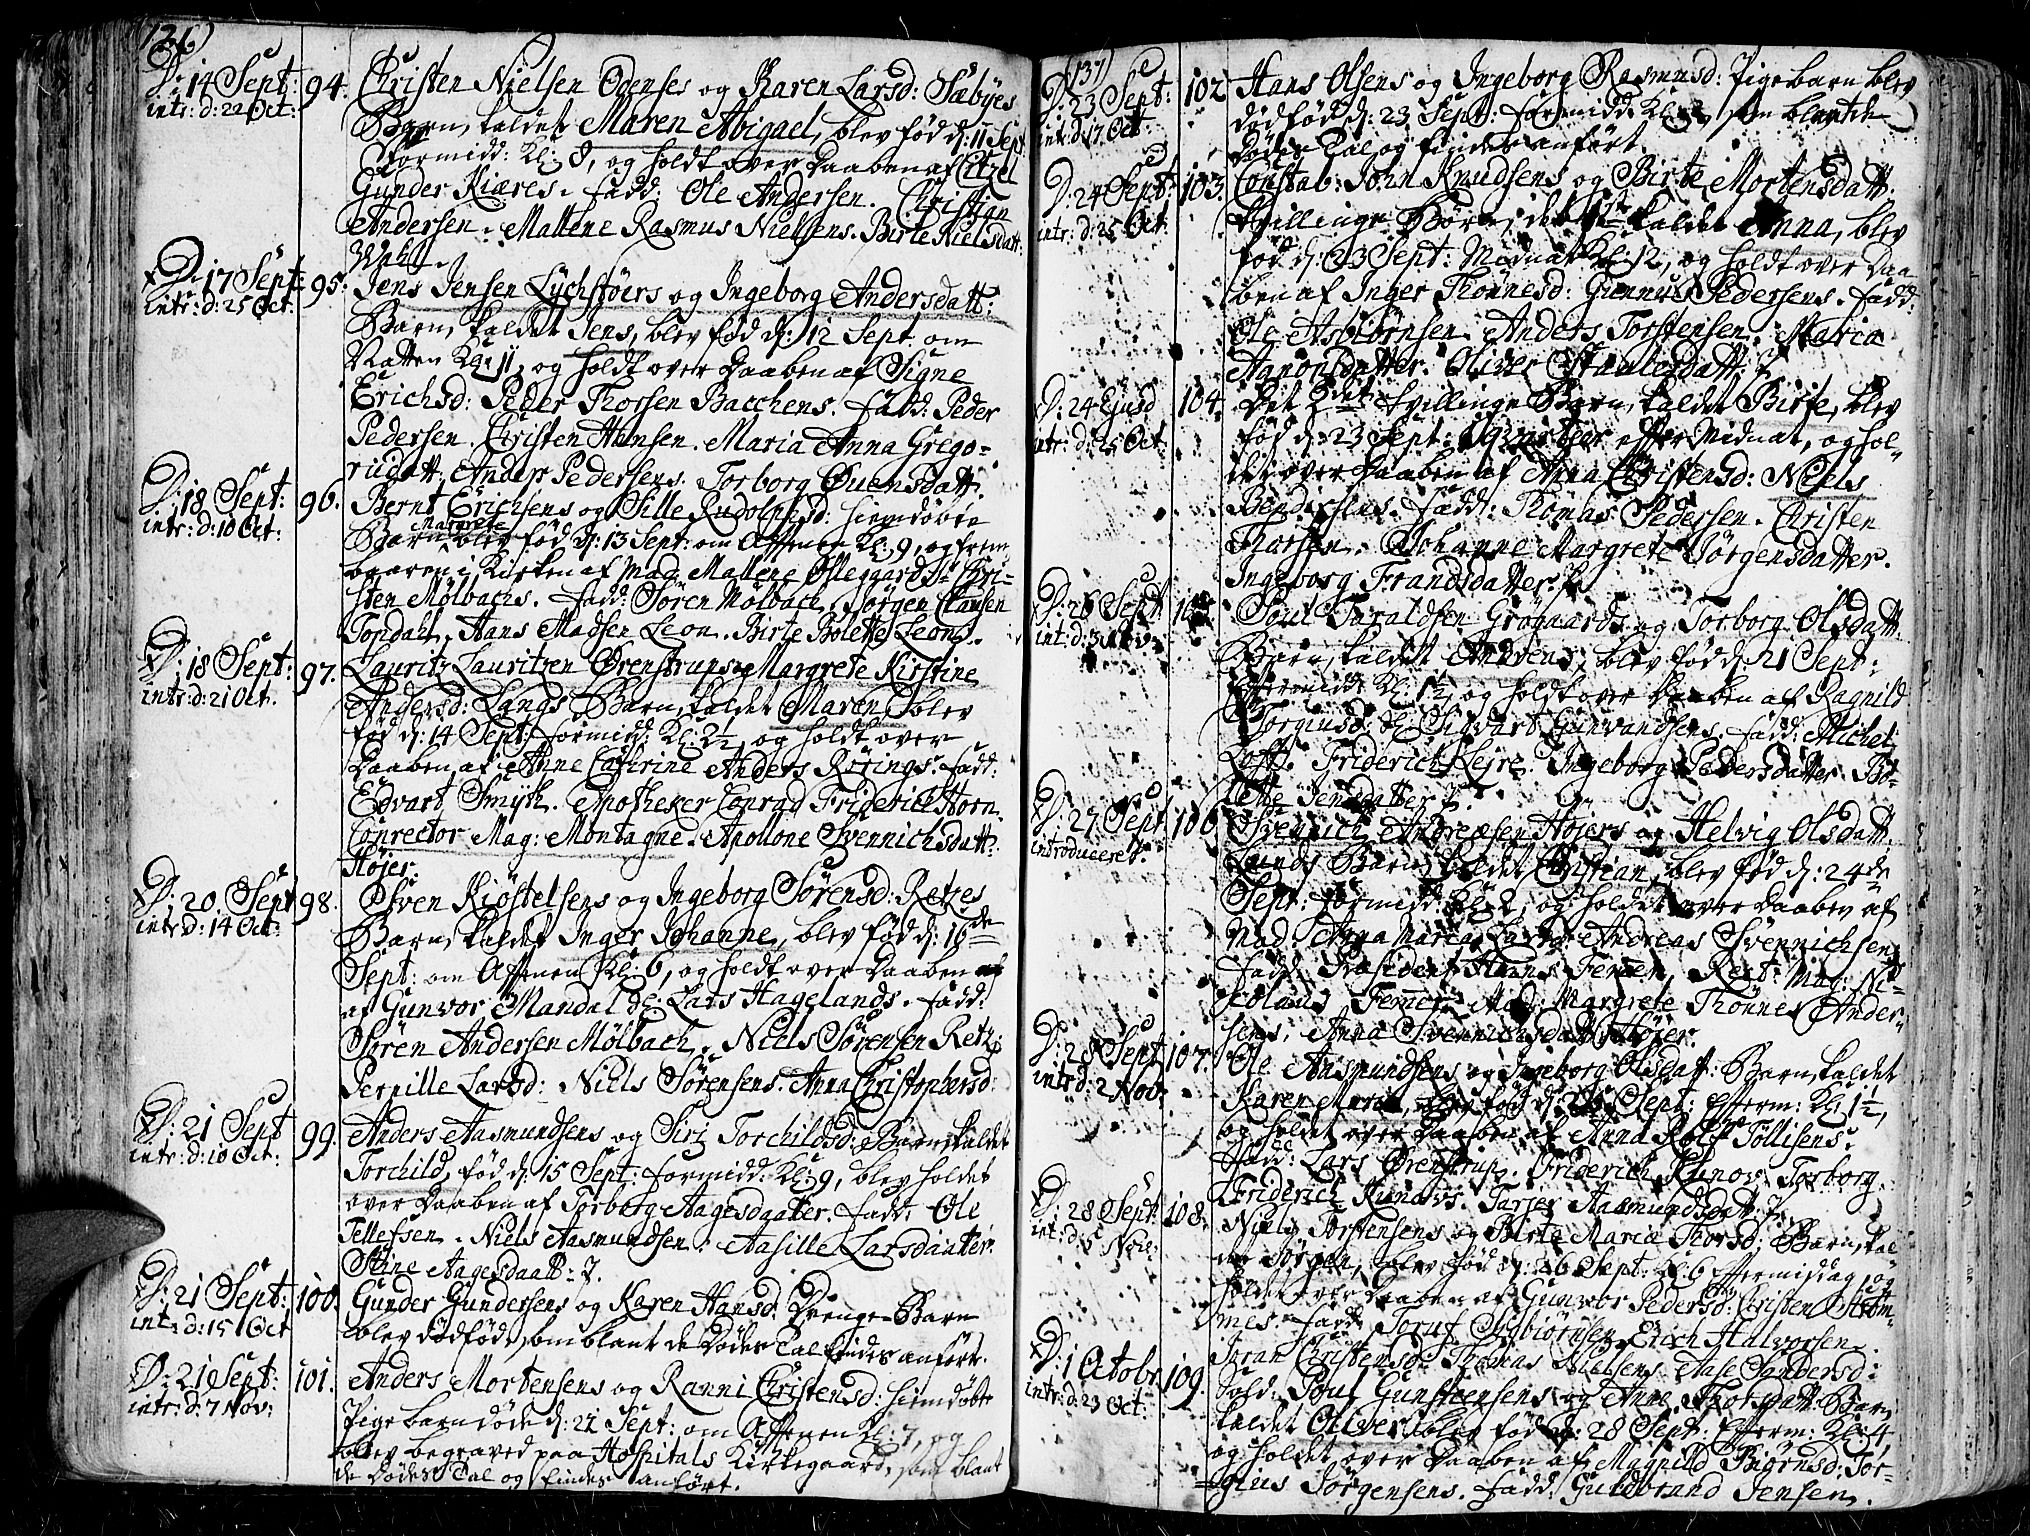 136)
D: 14 Sept:
intr: d: 22 Oct:
94.
Christen Nielsen Odenses og Karen Larsd: Sæbyes
Barn, kaldet Maren Abigael, blev fød d: 11 Sept:
Formidd: Kl: 8, og holdt over Daaben af Citzel
Gunder Kiæres. Fadd: Ole Andersen. Christian
Andersen. Mallene Rasmus Nielsens. Birte Nielsdatt:
Wahl.
D: 17 Sept:
intr: d: 25 Oct:
95.
Jens Jensen Lychstøers og Ingeborg Andersdatt:
Barn, kaldet Jens, blev fød d: 12 Sept om
Natten Kl: 11, og holdt over Daaben af Signe
Erichsd: Peder Thorsen Bacchens. Fadd: Peder
Pedersen. Christen Hansen. Maria Anna Grego-
riidatt. Anders Pedersens. Torborg Ouensdatt.
D: 18 Sept:
intr: d: 10 Oct:
96.
Bernt Erichsens og Sille Rudolphsd: hiemdøbte
Barn Margrete blev fød d: 13 Sept: om Afftenen Kl: 9, og frem
baaren i Kirken af Mad: Mallene Olleggards Chri-
sten Mølbachs. Fadd: Søren Mølbach. Jørgen Clausen
Topdahl. Hans Madsen Leon. Birte Bolette Leons.
D: 18 Sept:
intr: d: 21 Oct.
97.
Lauritz Lauritzen Ørenstrups og Margrete Kirstine
Andersd: Langs Barn, kaldet Maren blev
fød d: 14 Sept: formidd: Kl: 2½, og holdt over
Daaben af Anne Cathrine Anders Rørings. Fadd:
Edvart Smyth. Apotheker Conrad Friderich Horn.
Conrector Mag: Montagne. Apollone Svennichsdatt:
Høyer.
D: 20 Sept
intr: d: 14 Oct:
98.
Sven Kiøstelsens og Ingeborg Sørensd: Retzes
Barn, kaldet Inger Johanne, blev fød d: 16de
Sept: om Afftenen Kl: 6, og holdt over Daaben af
af Gunvor Mandal dl: Lars Hagelands. Fadd:
Søren Andersen Mølbach. Niels Sørensen Retz.
Pernille Larsd: Niels Sørensens. Anna Christophersd:
D: 21 Sept
intr: d: 10 Oct:
99.
Anders Aasmundsens og Siri Torchildsd: Barn, kaldet
Torchild, fød d: 15 Sept: formidd: Kl: 9, blev holdet
over Daaben af Torborg Aagesdaatter. Fadd: Ole
Tellefsen. Niels Aasmundsen. Aasille Larsdaatter.
Stine Aagesdaatt: 7.
D: 21 Sept:
intr: d: 15 Oct
100.
Gunder Gundersens og Karen Hansd: Drenge-Barn
blev dødfød, som blant de Dødes Tal findes anført.
D: 21 Sept:
intr: d: 7 Nov:
101.
Anders Mortensens og Ranni Christensd: hiemdøbte
Pigebarn døde d: 22 Sept: om Afftenen Kl: 7, og
blev begraved paa Hospitals Kirkegaard, som blant
de Dødes Tal og findes anført.
(137)
D: 23 Sept:
intr: d: 17 Oct:
102
Hans Olsens og Ingeborg Rasmusd: Pigebarn blev
dødfød d: 23 Sept: formidd: Kl: 2, som blant de
Dødes Tal og findes anført.
D: 24 Sept:
intr: d: 25 Oct:
103.
Constab: John Knudsens og Birte Mortensdatt.
tvillinge Børn, det 1ste kaldet Anna, blev
fød d: 23 Sept: Midnat Kl: 12, og holdt over Daa
ben af Inger Thønnesd: Gunnus Pedersens. Fadd:
Ole Asbiørnsen. Anders Torstensen. Maria
Aanonsdatter. Oliver Staulesdatt: 7.
D: 24 Ejusd
intr: d: 25 Oct
104.
Det 2det tvillinge Barn, kaldet Birte, blev
fød d: 23 Sept: Qvarteer effter Midnat, og hol-
det over Daaben af Anna Christensd: Niels
Bendixsens. Fadd: Thomas Pedersen. Christen
Tharsen. Johanne Margrete Jørgensdatter.
Ingeborg Frandsdatter. 7.
D: 26 Sept
int: d: 3 Nov:
105
Poul Taraldsen Grøgaards og Torborg Olsdatt.
Barn, kaldet Andrens, blev fød d: 21 Sept:
Efftermidd: Kl: 1½, og holdt over Daaben af Ragnild
Torgiusd: dl: Sigvart Gunvandsens. Fadd: Michel
Lofft. Friderich Lejre. Ingeborg Pedersdatter. Bo-
lette Jensdatter 7.
D: 27 Sept
introduceret.
106
Svennich Andreæsen Højers og Helvig Olsdatt
Lunds Barn, kaldet Christian, blev fød d: 24de
Sept: formidd: Kl: 2, og holdet over Daaben af
Mad: Anna Maria Larsd: Andreas Svennichsens
Fadd: Præsident Hanns Femer. Rest: Mag: Ni-
colaus Femer. Mad: Margrete Thønnes Ander-
sens. Anna Svennichsdatt: Højer.
D: 28 Sept
intr: d: 2 Nov:
107.
Ole Aasmundsens og Ingeborg Olsdatt: Barn, kaldet
Karen Maria, blev fød d: 26 Sept: Efterm: Kl: 1½,
og holdet over Daaben af Anna Rolf Tøllisens.
Fadd: Lars Ørenstrup. Friderich Kunov. Torborg
Friderich Kunovs. Tarjer Aasmundsdatt: 7.
D: 28 Sept
intr: d: 8 Nov:
108.
Niels Torstensens og Birte Maria Thorsd: Barn, kal
det Jørgen, blev fød d: 26 Sept: Kl: 6 Eftermiddag, og
holdet over Daaben af Gunvor Pedersd: Christen Strøm-
mes. Fadd: Toruf Asbiørnsen. Erich Halvorsen.
Joran Christensd: Thomas Nielsens. Aase Sandersd:
D: 1 Octobr
intr: d: 23 Oct:
109
Sold: Poul Gunsteensens og Anne Thorsdatt: Barn
kaldet Oliver blev fød d: 28 Sept: Efterm: Kl: 4,
og holdet over Daaben af Magnild Biørnsd: Tor-
gius Jørgensens. Fadd: Guldbrand Jensen.